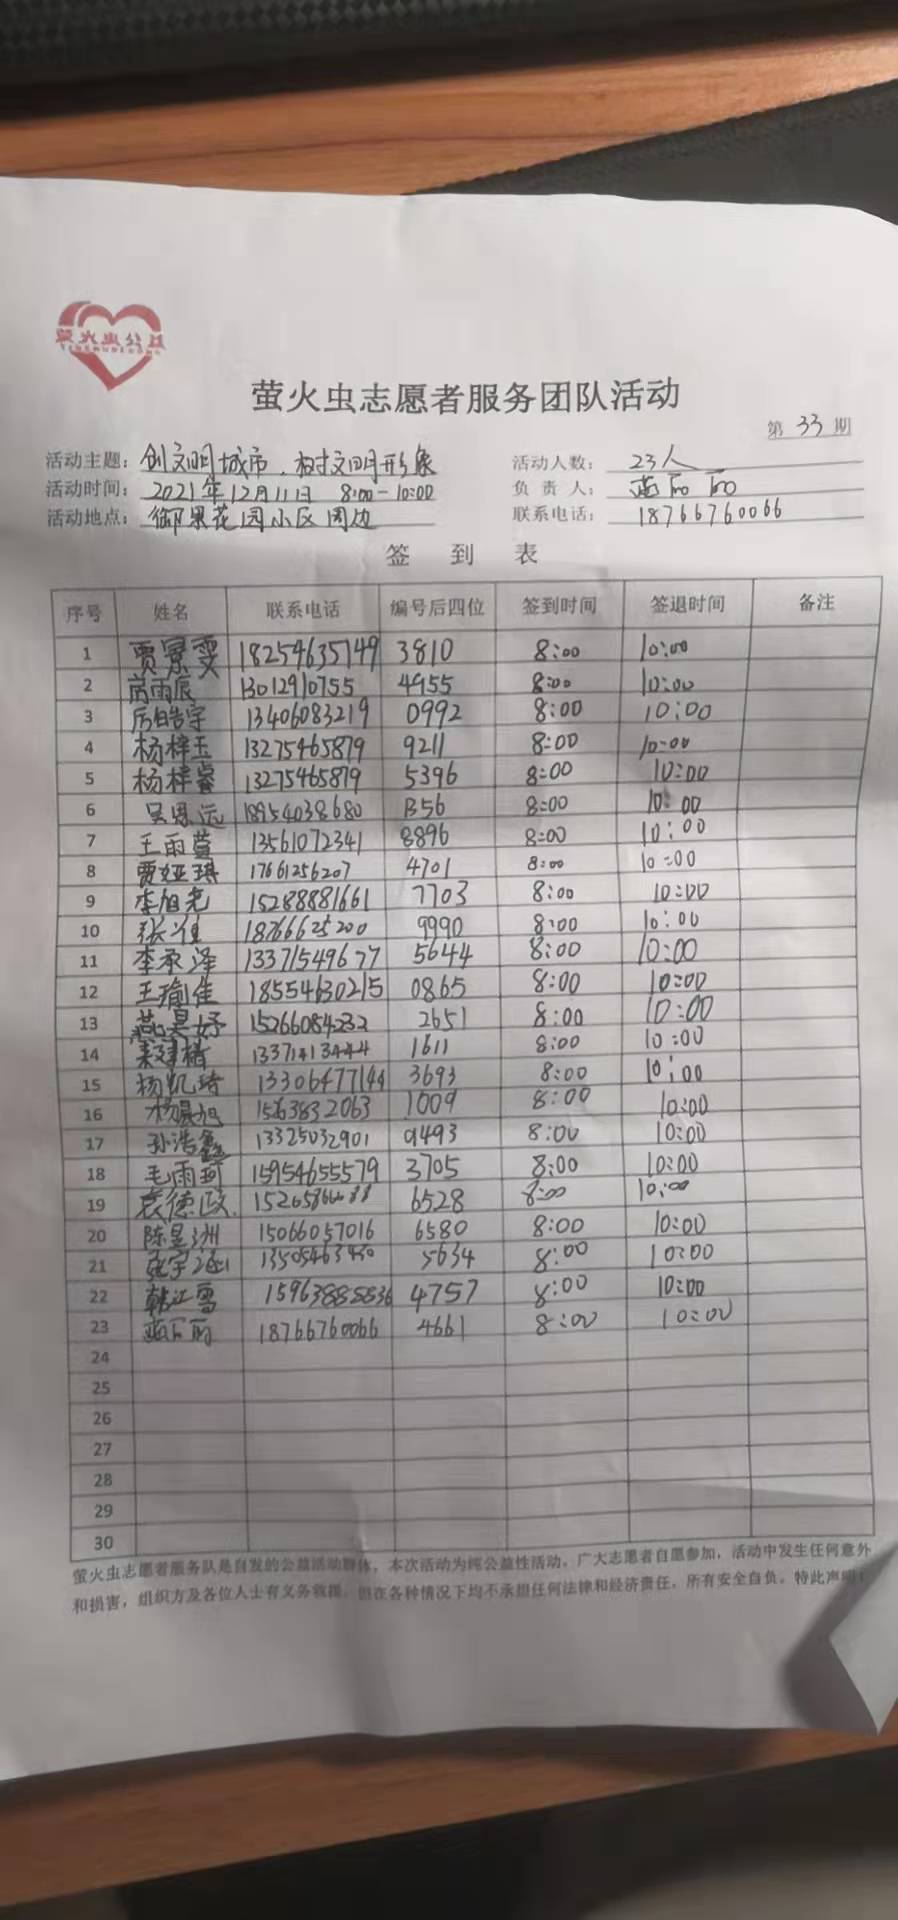 萤火虫公益
萤火虫志愿者服务团队活动
第 33 期
活动主题: 创文明城市、树文明形象 活动人数: 23人
活动时间: 2021年12月11日 8:00-10:00 负 责 人:
活动地点: 御景花园小区周边 联系电话: 18766760066
签 到 表
序号 姓名 联系电话 编号后四位 签到时间 签退时间 备注
1 贾景雯 18254635749 3810 8:00 10:00
2 芮雨辰 13012910755 4955 8:00 10:00
3 厉皓宇 13406083219 0992 8:00 10:00
4 杨梓玉 13275465879 9211 8:00 10:00
5 杨梓睿 13275465879 5396 8:00 10:00
6 吴恩远 18954038680 8:00 10:00
7 王雨萱 13561072341 8896 8:00 10:00
8 贾娅琪 17661256207 4701 8:00 10:00
9 李旭尧 15288881661 7703 8:00 10:00
10 张 18766625200 9990 8:00 10:00
11 李承泽 13371549677 5644 8:00 10:00
12 王瑜佳 18554630215 0865 8:00 10:00
13 燕昊妤 15266084232 2651 8:00 10:00
14 13371413444 1611 8:00 10:00
15 杨凯琦 13306477144 3693 8:00 10:00
16 杨晨旭 1563832063 1009 8:00 10:00
17 孙浩鑫 13325032901 9493 8:00 10:00
18 毛雨珂 15954655579 3705 8:00 10:00
19 袁德政 6528 8:00 10:00
20 陈昱洲 15066057016 6580 8:00 10:00
21 张宇涵 13505463430 5634 8:00 10:00
22 韩江雪 15963885836 4757 8:00 10:00
23 18766760066 4661 8:00 10:00
24
25
26
27
28
29
30
萤火虫志愿者服务队是自发的公益活动群体，本次活动为纯公益性活动，广大志愿者自愿参加，活动中发生任何意外
和损害，组织方及各位人士有义务救援，但在各种情况下均不承担任何法律和经济责任，所有安全自负。特此声明！